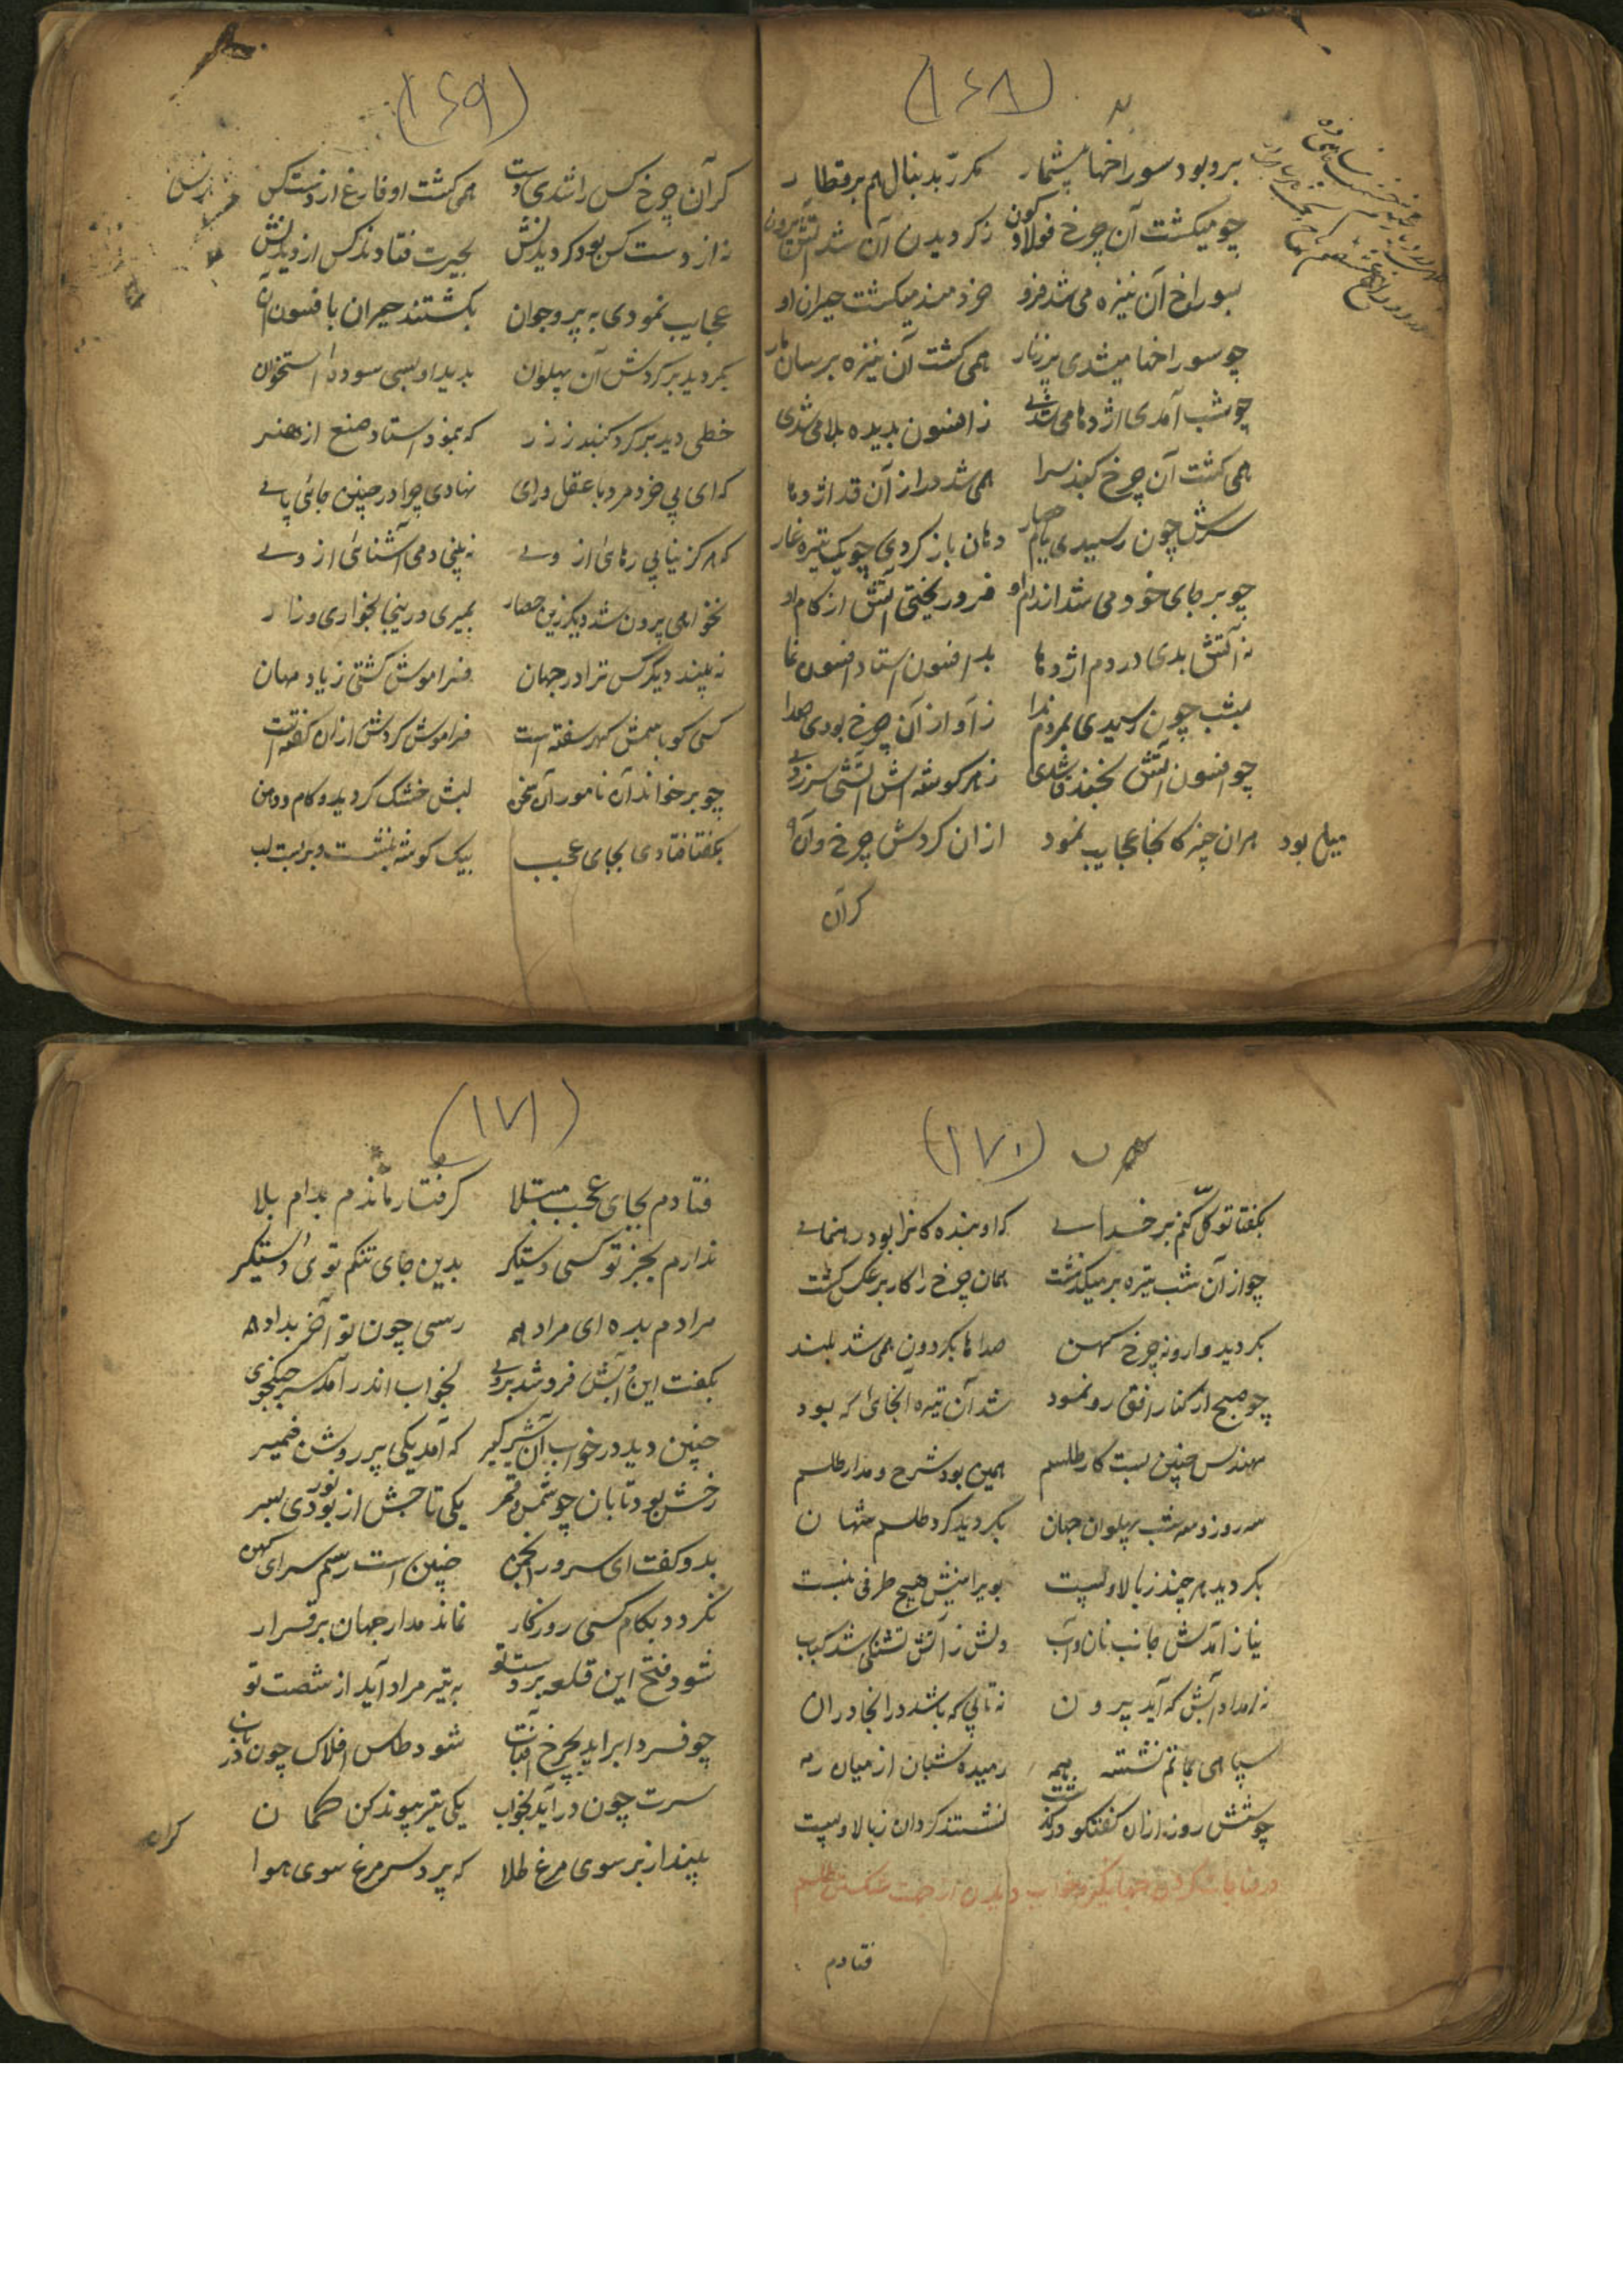 (۱۶۸)
برو بود سوراخها بیشمار مکرّر بدنبال هم برقطار
چو میکشت آن چرخ فولاد کون ز کردیدن آن شد آتش برون
بسوراخ آن نیزه می شد فرو خردمند میکشت حیران او
چو سوراخها میشدی برزنار همی کشت آن نیزه برسان مار
چو شب آمدی اژدها می شدی ز افسون پدیده بلا می شدی
همی کشت آن چرخ کنبذ سرا همی شد دراز آن قد اژدها
سرش چون رسیدی ببام حصار دهان باز کردی چو یک تیره غار
چو بر جای خود می شد اندام او فرو ریختی آتش از کام او
نه آتش بدی در دم اژدها بد افسون استاد افسون نما
بشب چون رسیدی بمردم ندا ز آواز آن چرخ بودی صدا
چو افسون آتش بخفند شدی ز هر کوشه اش آتشی سر زدی
هران چیز کانجا عجایب نمود از ان کردش چرخ و آن میل بود
کر آن
(۱۶۹)
کر آن چرخ کس را شدی دست همی کشت او فارغ از دست کس
نه از دست کس بود کردیدنش بحیرت فتادند کس از دیدنش
عجایب نمودی به پیر و جوان بکشتند حیران با فسون آن
بکردید بر کردش آن پهلوان بدید او بسی سوده استخوان
خطی دید بر کرد کنبد ز زر که بنمود استاد صنع از هنر
که ای بی خرد مرد با عقل و رای نهادی چرا در چنین جائی پای
که هرکز نیابی رهائی از وی نه بینی دمی آشنائی از وی
نخواهی برون شد دیکر زین حصار بمیری درینجا بخواری و زار
نه بیند دیکر کس ترا در جهان فراموش کشتی ز یاد مهان
کسی کو بامش کهر سفته است فراموش کردش از ان کفته است
چو بر خواند آن نامور آن سخن لبش خشک کردید و کام و دهن
بکفتا فتادی بجای عجب بیک کوشه بنشست و بربست لب
(۱۷۰)
بکفتا توکّل کنم بر خدای که او بنده کانرا بود رهنمای
چو از آن شب تیره بر میکذشت همان چرخ را کار بر عکس کشت
بکردید وارونه چرخ کهن صداها بکردون همی شد بلند
چو صبح از کنار افق رو نمود شد آن تیره انجای که بود
مهندس چنین بست کار طلسم همین بود شرح و مدار طلسم
سه روز و سه شب پهلوان جهان بکردید کرد طلسم شهان
بکردید هر چند ز بالا و پست بویرانیش هیچ طرفی نبست
نیاز آمدش جانب نان و آب دلش ز آتش تشنکی شد کباب
نه امداد آبش که آید برون نه تابی که باشد در انجا در ان
سپاهی بماتم نشسته همه رمیده شبان از میان رمه
چو شش روز از ان کفتکو درکذشت نشستند کردان ز بالا و پست
در مناجات کردن جهانکیر و خواب دیدن از جهت شکستن طلسم
فتادم
(۱۷۱)
فتادم بجای عجب مبتلا کرفتار ماندم بدام بلا
ندارم بجز تو کسی دستکیر بدین جای تنکم توئی دستکیر
مرادم بده ای مراد همه رسی چون تو آخر بداد همه
بکفت این و آبش فرو شد بروی بخواب اندر آمد سر جنکجوی
چنین دید در خواب آن شیرکیر که آمد یکی پیر روشن ضمیر
رخش بود تابان چو شمس و قمر یکی تاجش از نور بودی بسر
بدو کفت ای سرور انجمن چنین است رسم سرای کهن
نکردد بکام کسی روزکار نماند مدار جهان برقرار
شود فتح این قلعه بر دست تو به تیر مراد آید از شصت تو
چو فردا براید بچرخ آفتاب شود طاس افلاک چون زر ناب
سرت چون درآید بخواب یکی تیر پیوند کن کمان
بینداز بر سوی مرغ طلا که پرد سر مرغ سوی هوا